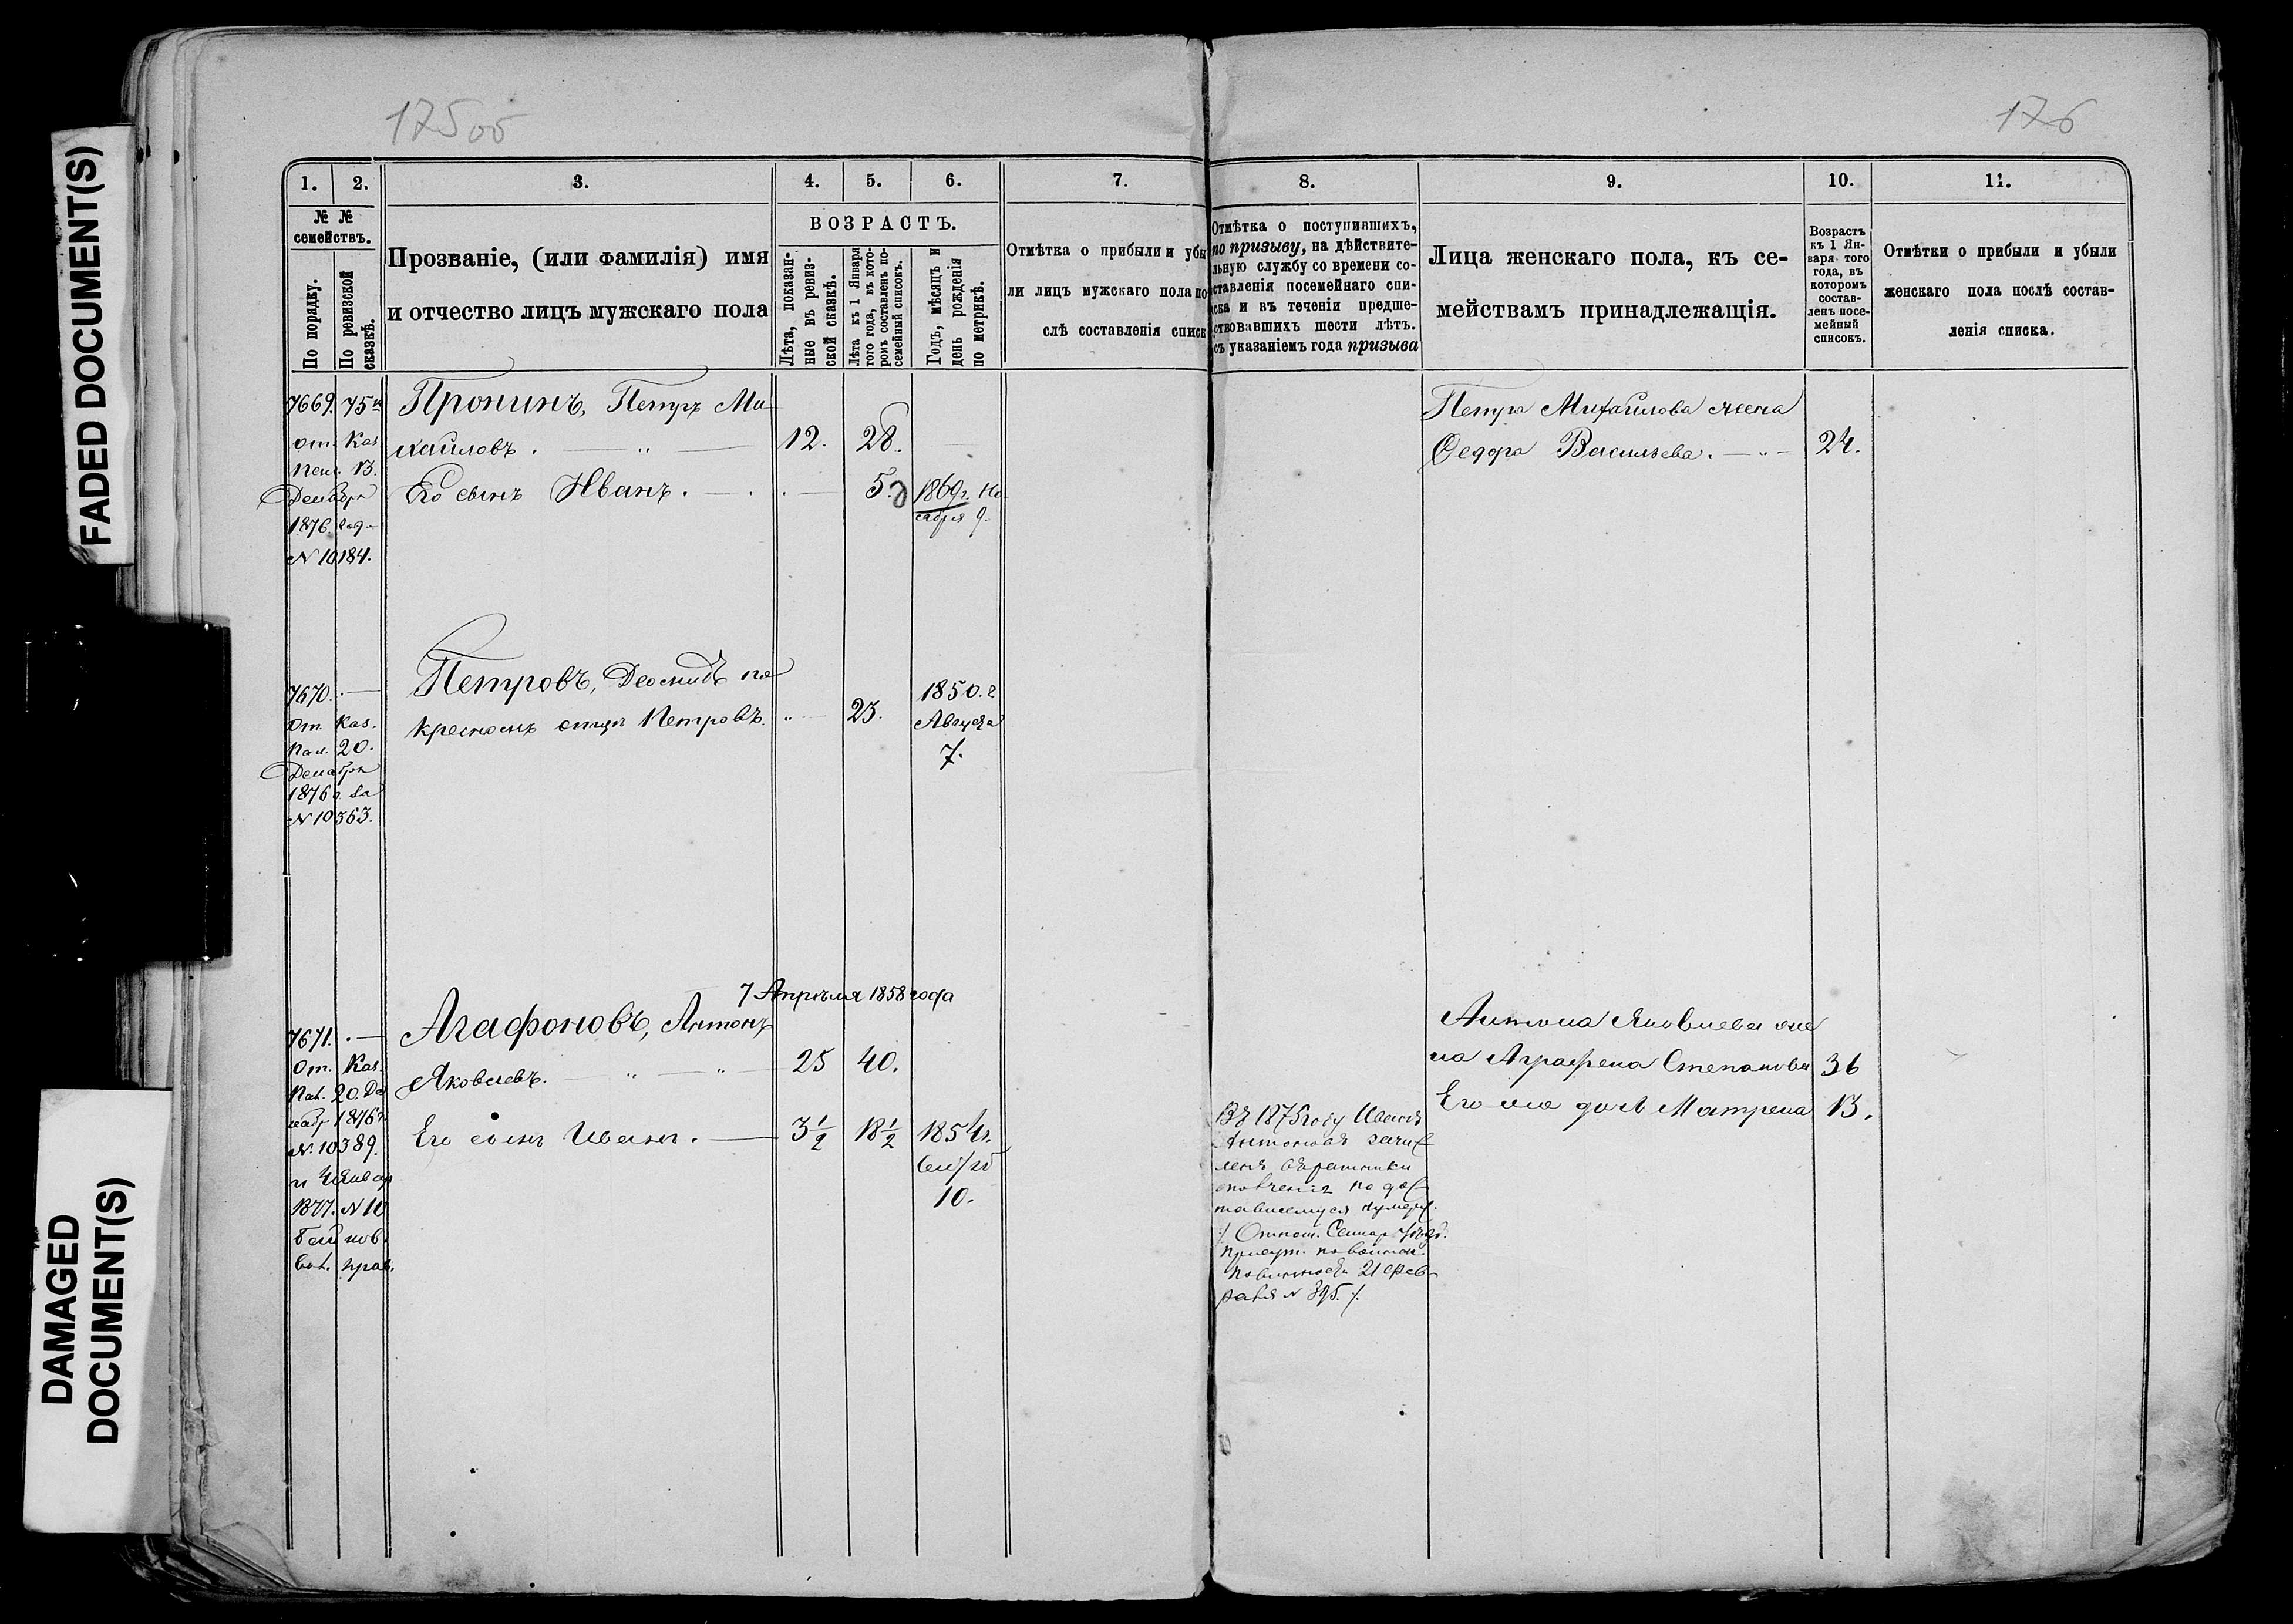 FADED DOCUMENT(S)
DAMAGED
DOCUMENT(S)
175об
176
1.
2.
3.
4.
5.
6.
7.
8.
9.
10.
11.
№ №
семействъ.
По порядку.
По ревизской
сказкѣ.
Прозваніе, (или фамилія) имя
и отчество лицъ мужскаго пола
ВОЗРАСТЪ.
Лѣта, показан-
ные въ ревиз-
ской сказкѣ.
Лѣта къ 1 Января
того года, въ кото-
ромъ составленъ по-
семейный списокъ.
Годъ, мѣсяцъ и
день рожденія
по метрикѣ.
Отмѣтка о прибыли и убы
ли лицъ мужскаго пола по
слѣ составленія списк
Отмѣтка о поступившихъ,
по призыву, на дѣйствите-
льную службу со времени со-
ставленія посемейнаго спи-
ска и въ теченіи предше-
ствовавшихъ шести лѣтъ.
съ указаніемъ года призыва
Лица женскаго пола, къ се-
мействамъ принадлежащія.
Возрастъ
къ 1 Ян-
варя того
года, въ
котором
состав-
ленъ посе-
мейный
списокъ.
Отмѣтки о прибыли и убыли
женскаго пола послѣ состав-
ленія списка.
7669.
От. Каз.
13.
Декабря
1876.
N 10184.
Пронинъ, Петръ Ми
хайловъ.
12.
28.
Его сынъ Иванъ.
5.
1869г. Но
ября 9.
Петра Михайлова жена
Федора Васильева.
24.
7670.
От. Каз.
Пал. 20.
Декабря
1876 за
N 10363.
Петровъ, Деомидъ по
крестномъ отцѣ Петровъ.
23.
1850.г
Августа
7.
7671.
От. Каз.
Пал. 20 Де
кабр 1876г.
N. 10389.
и 4 Январ
1877. N 10
прав.
7 Апрѣля 1858 года
Агафоновъ, Антонъ
Яковлевъ.
25
40.
Его сынъ Иванъ.
3 1/2
18 1/2
1854г.
10.
Въ 1875 году Иванъ
Антоновъ зачис
ленъ въ ратники
ополченія по дос
тавшемуся нумеру.
Отнош. Самар. уѣзд.
присут. по воинск.
повинности 21 Фев-
раля N 395. /.
Антона Яковлева же
на Аграфена Степанова
36
Его же дочь Матрена
13.